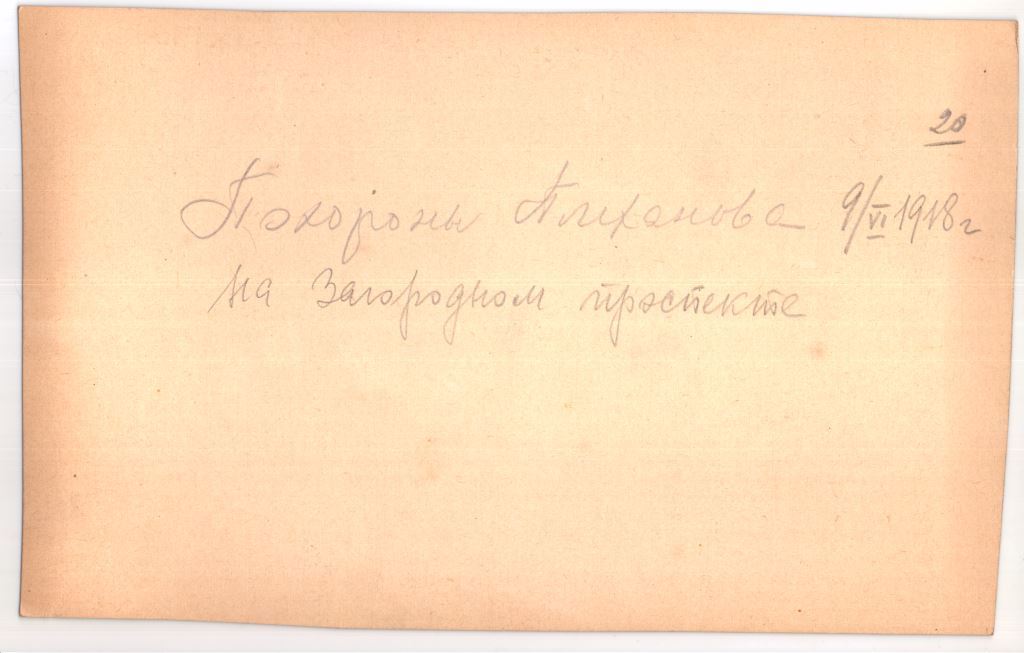 20
Похороны Плеханова 9/VI 1918 г
на Загородном проспекте